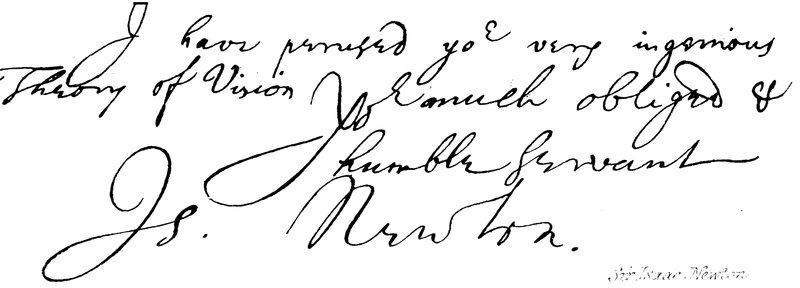 I have perused yoᵉ very ingenious
Theory of Vision Yoᵉ much obliged &
humble Servant
Is. Newton.
Sir Isaac Newton